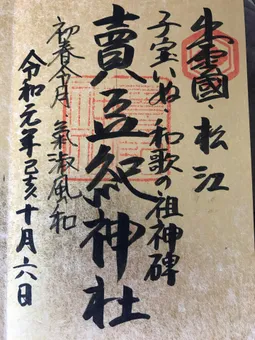 出雲國・松江
子宝いぬ・和歌の祖神碑
賣豆紀神社
初春令月 氣淑風和
令和元年己亥十月六日